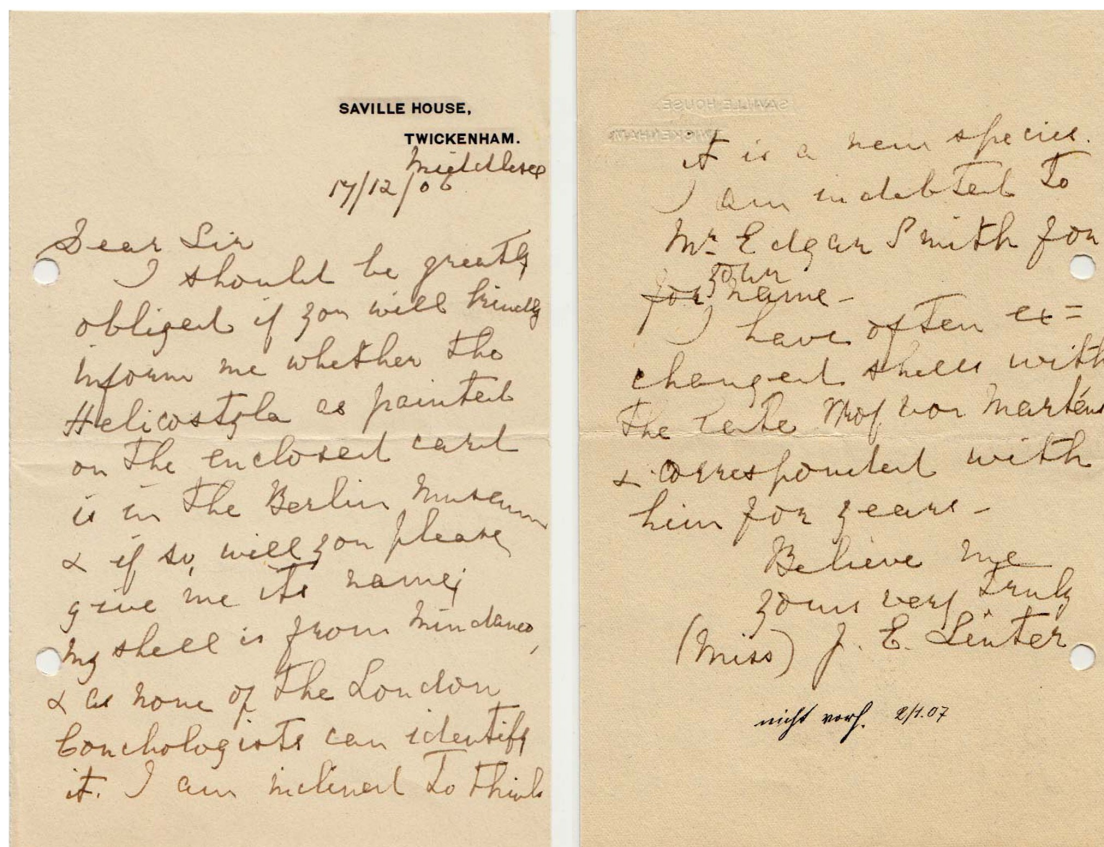 SAVILLE HOUSE,
TWICKENHAM.
Middlesex
17/12/06
Dear Sir
I should be greatly
obliged if you will kindly
inform me whether the
Helicostyla as painted
on the enclosed card
is in the Berlin Museum
& if so, will you please
give me its name;
My shell is from Mindanao,
& as none of the London
Conchologists can identify
it. I am inclined to think
it is a new species.
I am indebted to
Mr Edgar Smith for
for your name -
I have often ex=
changed shells with
the late Prof von Martens
& corresponded with
him for years -
Believe me
yours very truly
(Miss) J. E. Linter
nicht vorh. 2/1.07